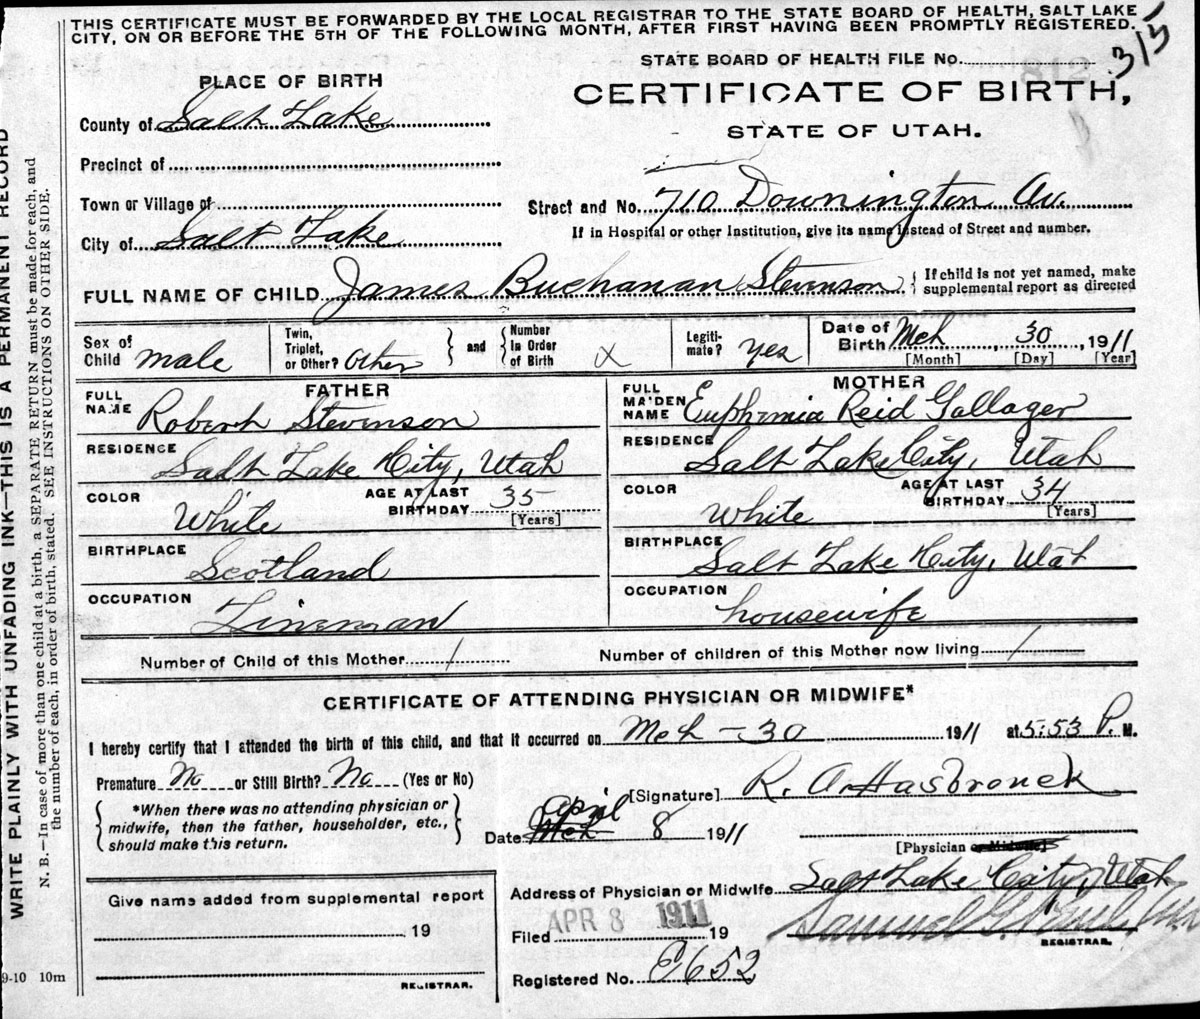 THIS CERTIFICATE MUST BE FORWARDED BY THE LOCAL REGISTRAR TO THE STATE BOARD OF HEALTH, SALT LAKE
CITY, ON OR BEFORE THE 5TH OF THE FOLLOWING MONTH, AFTER FIRST HAVING BEEN PROMPTLY REGISTERED.
315
STATE BOARD OF HEALTH FILE No. 812
PLACE OF BIRTH
CERTIFICATE OF BIRTH,
STATE OF UTAH.
County of Salt Lake
Precinct of
Town or Village of
City of Salt Lake
Street and No. 710 Downington Av.
If in Hospital or other Institution, give its name instead of Street and number.
FULL NAME OF CHILD James Buchanan Stevenson
If child is not yet named, make
supplemental report as directed
Sex of Child male
Twin, Triplet, or Other? Other and Number In Order of Birth X
Legiti-mate? yes
Date of Birth Mch 30 1911
[Month] [Day] [Year]
FATHER
FULL NAME Robert Stevenson
RESIDENCE Salt Lake City, Utah
COLOR White AGE AT LAST BIRTHDAY 35 [Years]
BIRTHPLACE Scotland
OCCUPATION Lineman
MOTHER
FULL MAIDEN NAME Euphemia Reid Gallager
RESIDENCE Salt Lake City, Utah
COLOR White AGE AT LAST BIRTHDAY 34 [Years]
BIRTHPLACE Salt Lake City, Utah
OCCUPATION housewife
Number of Child of this Mother 1 Number of children of this Mother now living 1
CERTIFICATE OF ATTENDING PHYSICIAN OR MIDWIFE*
I hereby certify that I attended the birth of this child, and that it occurred on Mch - 30 1911 at 5:53 P. M.
Premature No or Still Birth? No (Yes or No)
*When there was no attending physician or
midwife, then the father, householder, etc.,
should make this return.
[Signature] R. A. Hasbrouck
April
Date Mch 8 1911
[Physician or Midwife]
Address of Physician or Midwife Salt Lake City, Utah
Give name added from supplemental report
19
REGISTRAR.
Filed APR 8 1911 19
Samuel G.
REGISTRAR.
Registered No. E652
9-10 10m
WRITE PLAINLY WITH UNFADING INK—THIS IS A PERMANENT RECORD
N. B.—In case of more than one child at a birth, a SEPARATE RETURN must be made for each, and
the number of each, in order of birth, stated. SEE INSTRUCTIONS ON OTHER SIDE.